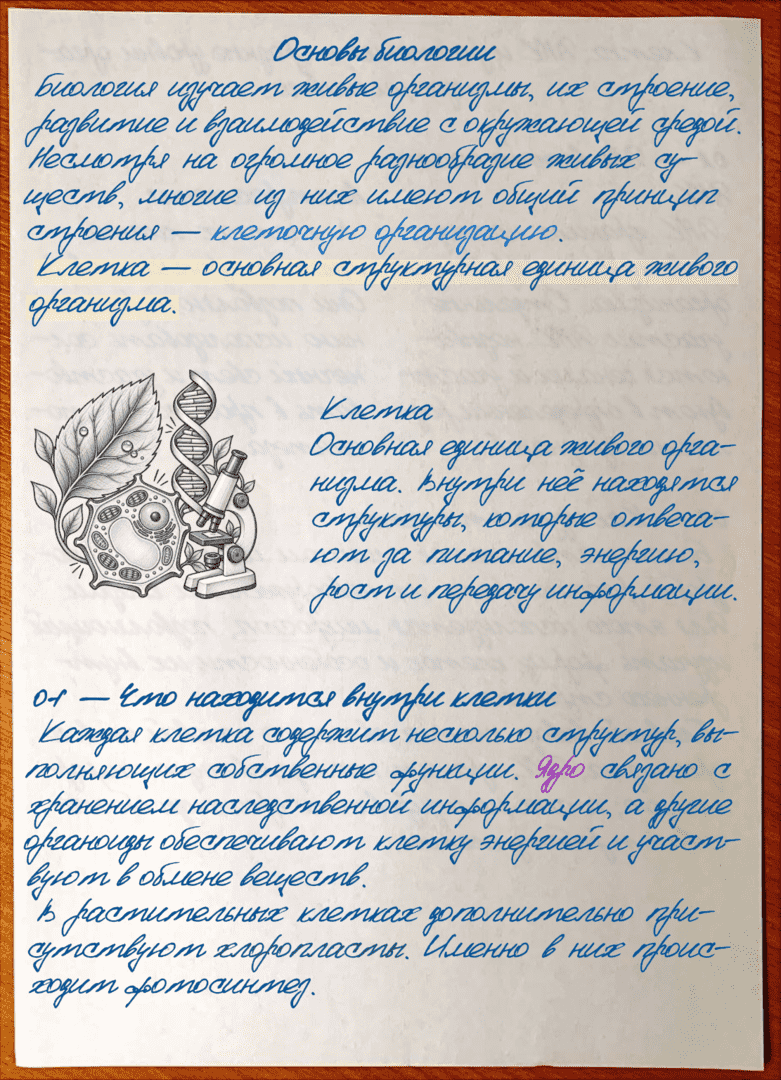 Основы биологии
Биология изучает живые организмы, их строение,
развитие и взаимодействие с окружающей средой.
Несмотря на огромное разнообразие живых су-
ществ, многие из них имеют общий принцип
строения — клеточную организацию.
Клетка — основная структурная единица живого
организма.
Клетка
Основная единица живого орга-
низма. Внутри неё находятся
структуры, которые отвеча-
ют за питание, энергию,
рост и передачу информации.
01 — Что находится внутри клетки
Каждая клетка содержит несколько структур, вы-
полняющих собственные функции. Ядро связано с
хранением наследственной информации, а другие
органоиды обеспечивают клетку энергией и участ-
вуют в обмене веществ.
В растительных клетках дополнительно при-
сутствуют хлоропласты. Именно в них проис-
ходит фотосинтез.